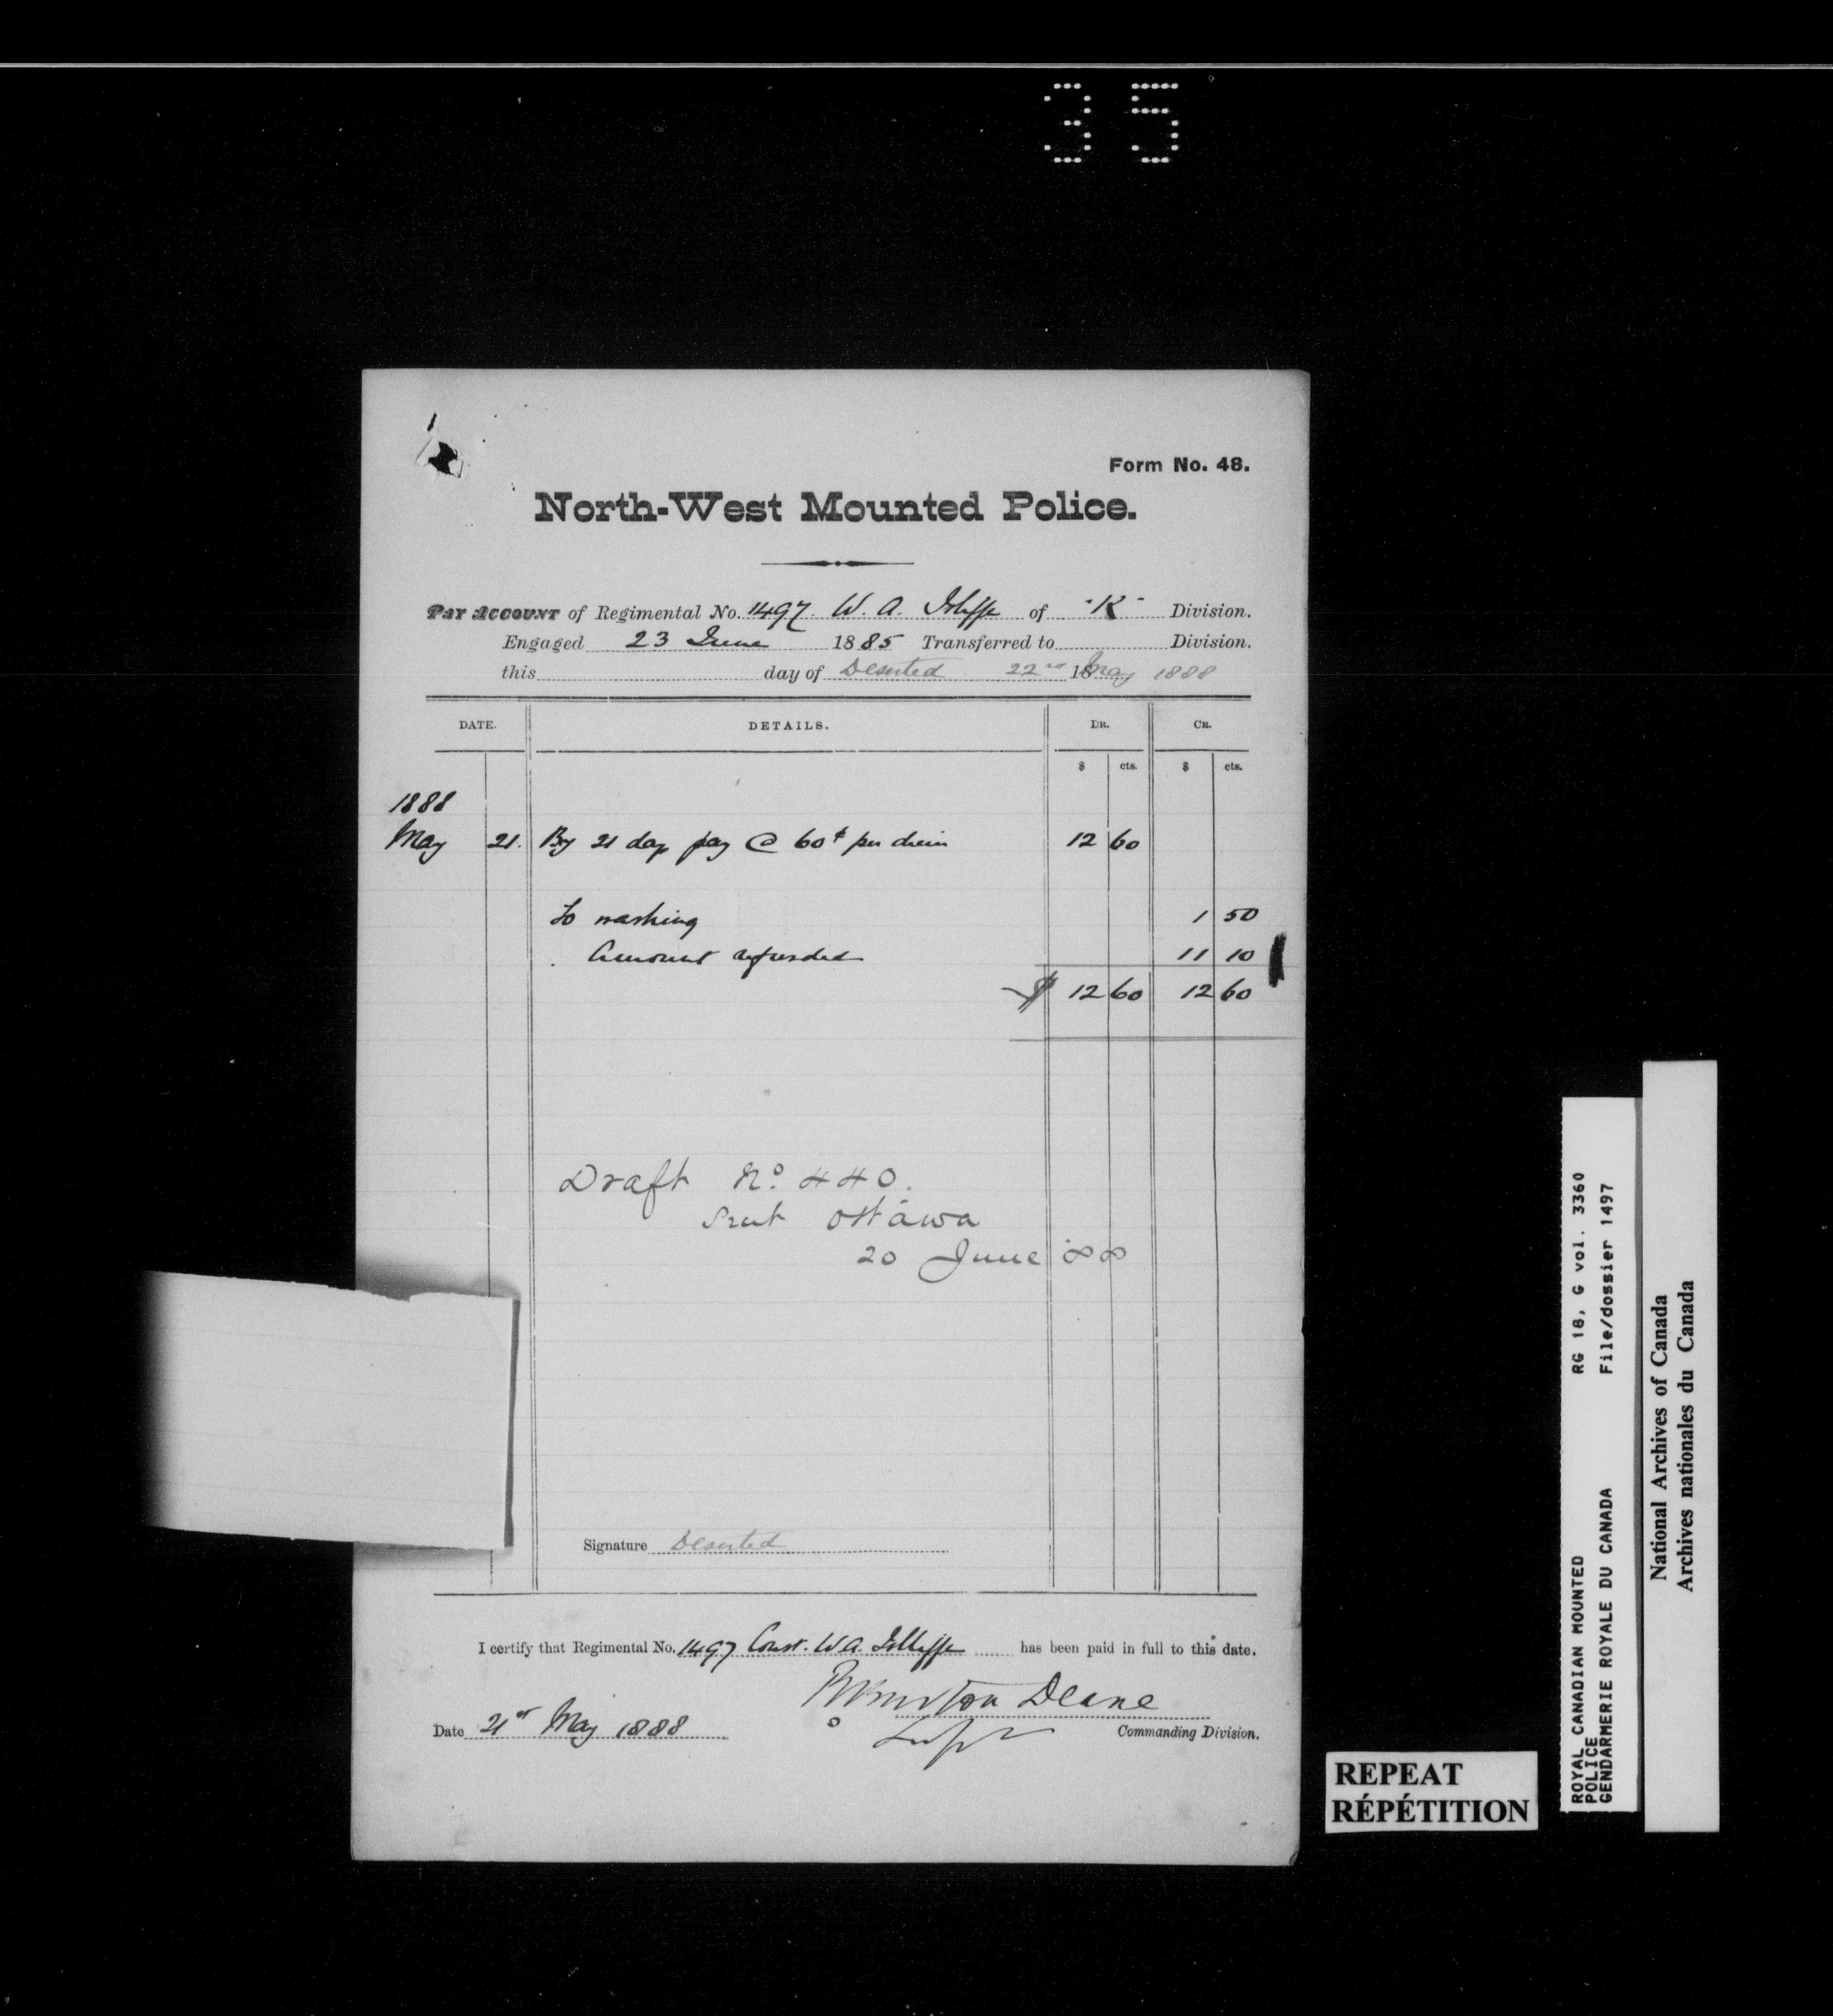 35
Form No. 48.
North-West Mounted Police.
Pay Account of Regimental No. 1497 W. A. of "K" Division.
Engaged 23 June 1885 Transferred to Division.
this day of Deserted 22nd 18 May 1888
DATE. DETAILS. DR. CR.
$ cts. $ cts.
1888
May 21. By 21 day pay @ 60¢ per diem 12 60
To washing 1 50
Amount refunded 11 10
$ 12 60 12 60
Draft No. 440.
sent Ottawa
20 June '88
Signature Deserted
I certify that Regimental No. 1497 Const. W A. has been paid in full to this date.
Burton Deane
Date 21st May 1888 Supt Commanding Division.
REPEAT
RÉPÉTITION
ROYAL CANADIAN MOUNTED RG 18, G vol. 3360
POLICE
GENDARMERIE ROYALE DU CANADA File/dossier 1497
National Archives of Canada
Archives nationales du Canada